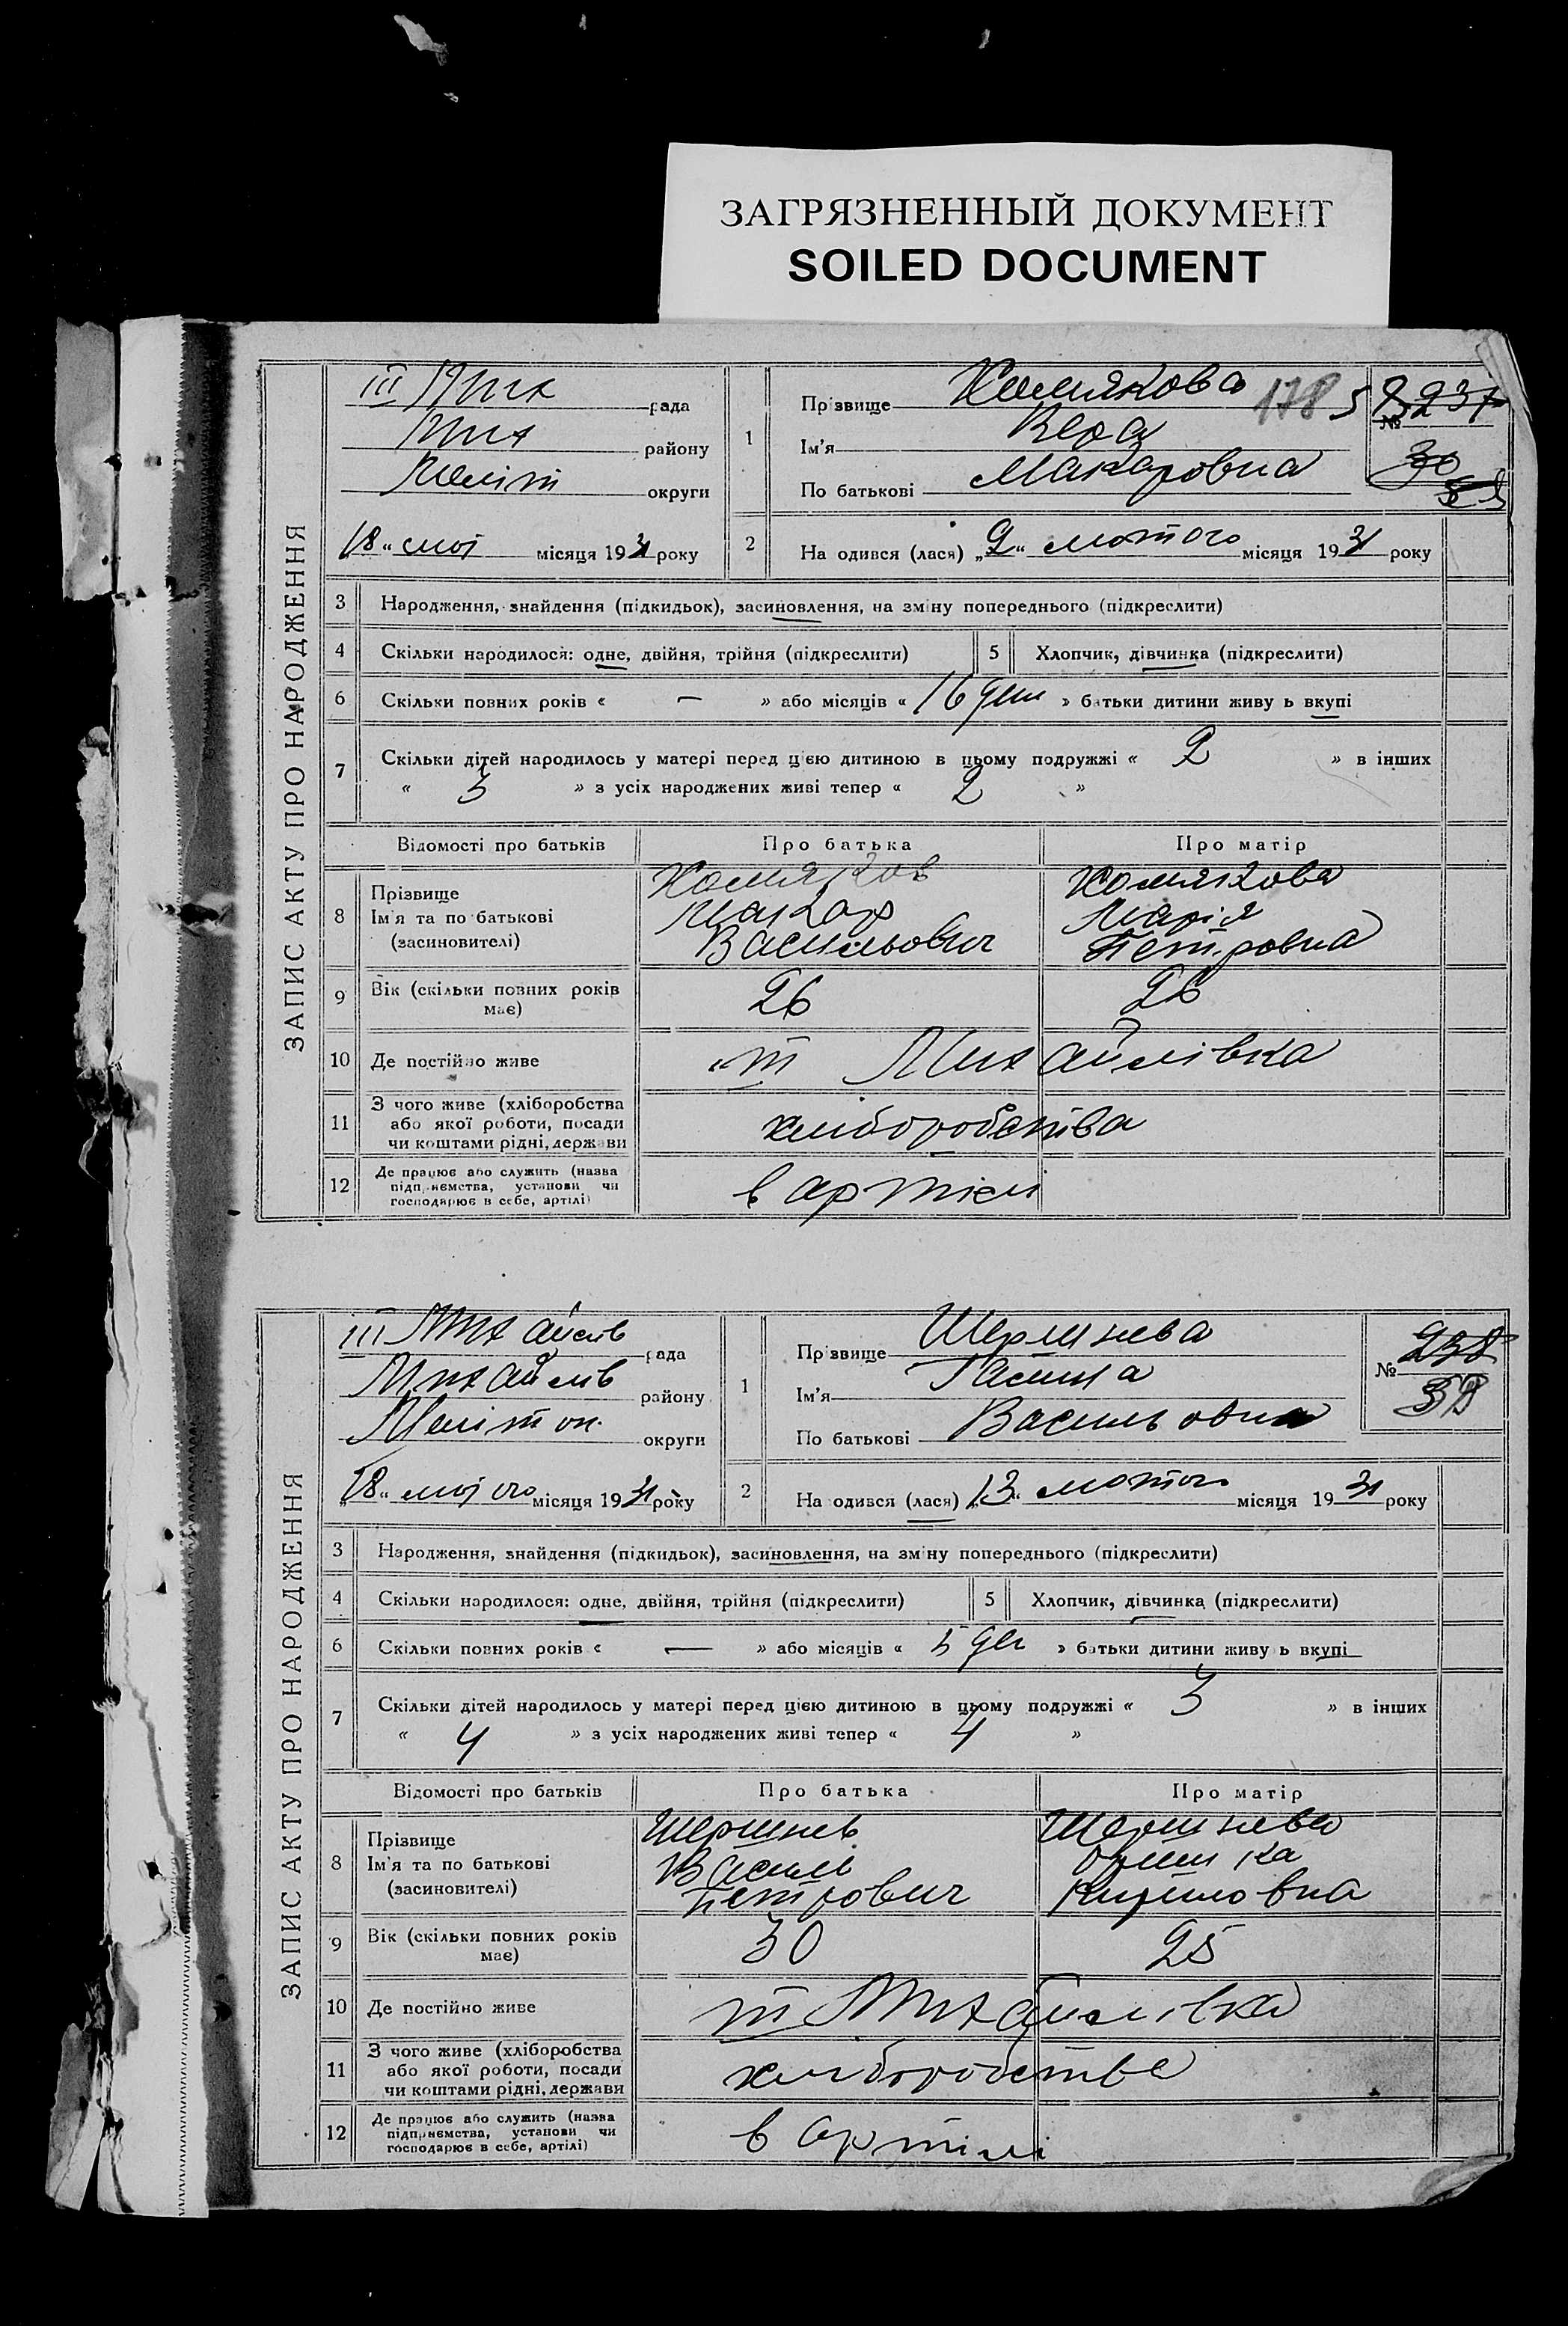 ЗАГРЯЗНЕННЫЙ ДОКУМЕНТ
SOILED DOCUMENT
ЗАПИС АКТУ ПРО НАРОДЖЕННЯ
III Мих рада
Мих району
Меліт округи
18 " лют місяця 1931 року
1
Прізвище Хомякова 178
Ім'я Вера
По батькові Макаровна
№ 237
30
2
На одився (лася) „9" лютого місяця 1931 року
3 Народження, знайдення (підкидьок), засиновлення, на зміну попереднього (підкреслити)
4 Скільки народилося: одне, двійня, трійня (підкреслити) 5 Хлопчик, дівчинка (підкреслити)
6 Скільки повних років « — » або місяців « 16 ден » батьки дитини живу ь вкупі
7 Скільки дітей народилось у матері перед цією дитиною в цьому подружжі « 2 » в інших
« 3 » з усіх народжених живі тепер « 2 »
Відомості про батьків Про батька Про матір
8 Прізвище Хомяков Хомякова
Ім'я та по батькові Макар Марія
(засиновителі) Васильович Петровна
9 Вік (скільки повних років має) 26 26
10 Де постійно живе III Михайлівка
11 З чого живе (хліборобства
або якої роботи, посади
чи коштами рідні, держави хліборобства
12 Де працює або служить (назва
підприємства, установи чи
господарює в себе, артілі) в артілі
ЗАПИС АКТУ ПРО НАРОДЖЕННЯ
III Михайлів рада
Михайлів району
Меліток. округи
„18" лютого місяця 1931 року
1
Прізвище Шершнева
Ім'я Галина
По батькові Васильовна
№ 238
2
На одився (лася) „13" лютого місяця 1931 року
3 Народження, знайдення (підкидьок), засиновлення, на зміну попереднього (підкреслити)
4 Скільки народилося: одне, двійня, трійня (підкреслити) 5 Хлопчик, дівчинка (підкреслити)
6 Скільки повних років « — » або місяців « 5 ден » батьки дитини живу ь вкупі
7 Скільки дітей народилось у матері перед цією дитиною в цьому подружжі « 3 » в інших
« 4 » з усіх народжених живі тепер « 4 »
Відомості про батьків Про батька Про матір
8 Прізвище Шершнев Шершнева
Ім'я та по батькові Василь Оришка
(засиновителі) Петрович Кириловна
9 Вік (скільки повних років має) 30 25
10 Де постійно живе III Михайлівка
11 З чого живе (хліборобства
або якої роботи, посади
чи коштами рідні, держави хліборобства
12 Де працює або служить (назва
підприємства, установи чи
господарює в себе, артілі) в артілі